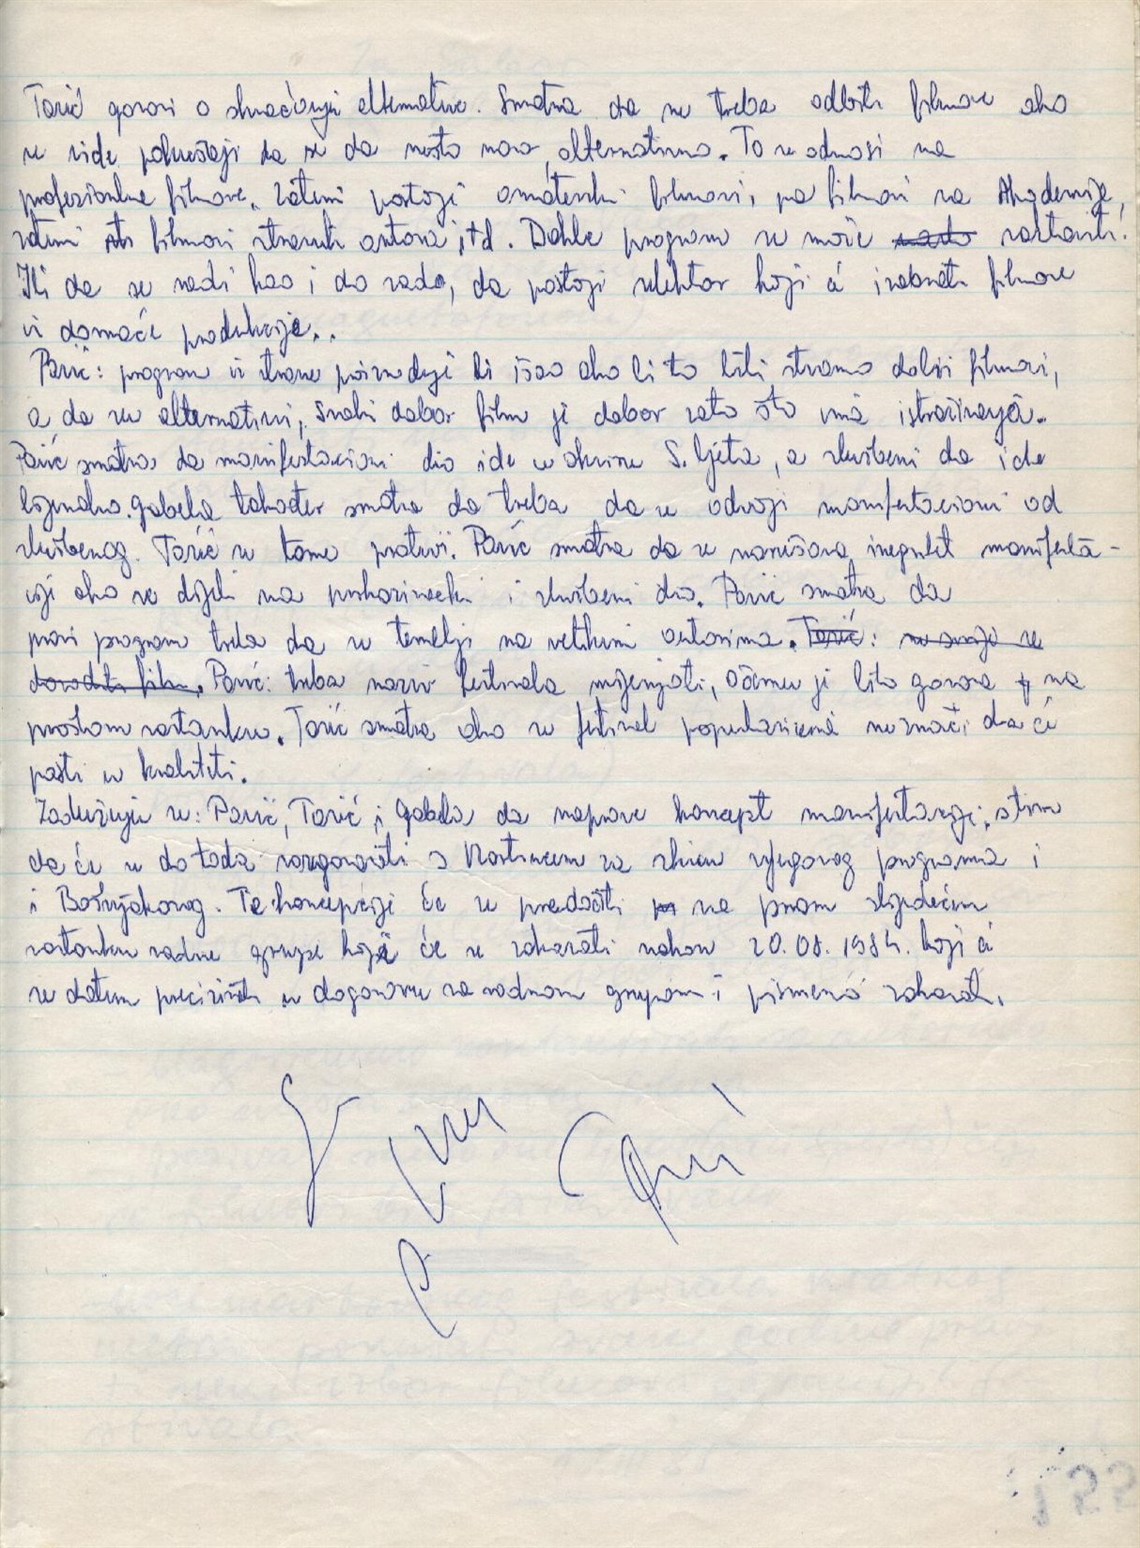 Tarić govori o shvaćanju alternative. Smatra da ne treba odbiti filmove ako
se vide pokušaji da se da nešto novo, alternativno. To se odnosi na
profesionalne filmove. Zatim postoji amaterski filmovi, pa filmovi sa Akademije,
zatim filmovi stranih autora itd. Dakle program se može sastaviti.
Ili da se radi kao i do sada, da postoji selektor koji će izabrati filmove
iz domaće produkcije..
Pavić: program iz strane proizvodnje bi išao ako bi to bili stvarno dobri filmovi,
a da su alternativni, svaki dobar film je dobar zato što ima istraživanja.
Pavić smatra da manifestacioni dio ide u okviru S. ljeta, a službeni da ide
Gabela također smatra da treba da se odvoji manifestacioni od
službenog. Tarić se tome protivi. Pavić smatra da se narušava manifesta-
cije ako se dijeli na i službeni dio. Pavić smatra da
pravi program treba da se temelji na velikim autorima. Tarić: ne smije se
dovoditi film. Pavić: treba naziv festivala mijenjati, o čemu je bilo govora na
prošlom sastanku. Tarić smatra ako se festival popularizira ne znači da će
pasti u kvaliteti.
Zadužuju se: Pavić, Tarić, i Gabela da naprave koncept manifestacije, s tim
da će se do tada razgovarati s Martincem za njegovog programa i
i Bošnjakovog. Te koncepcije će se predočiti na prvom slijedećem
sastanku radne grupe koja će se zakazati nakon 20.08.1984. koji će
se datum precizirati u dogovoru sa radnom grupom i pismeno zakazati.